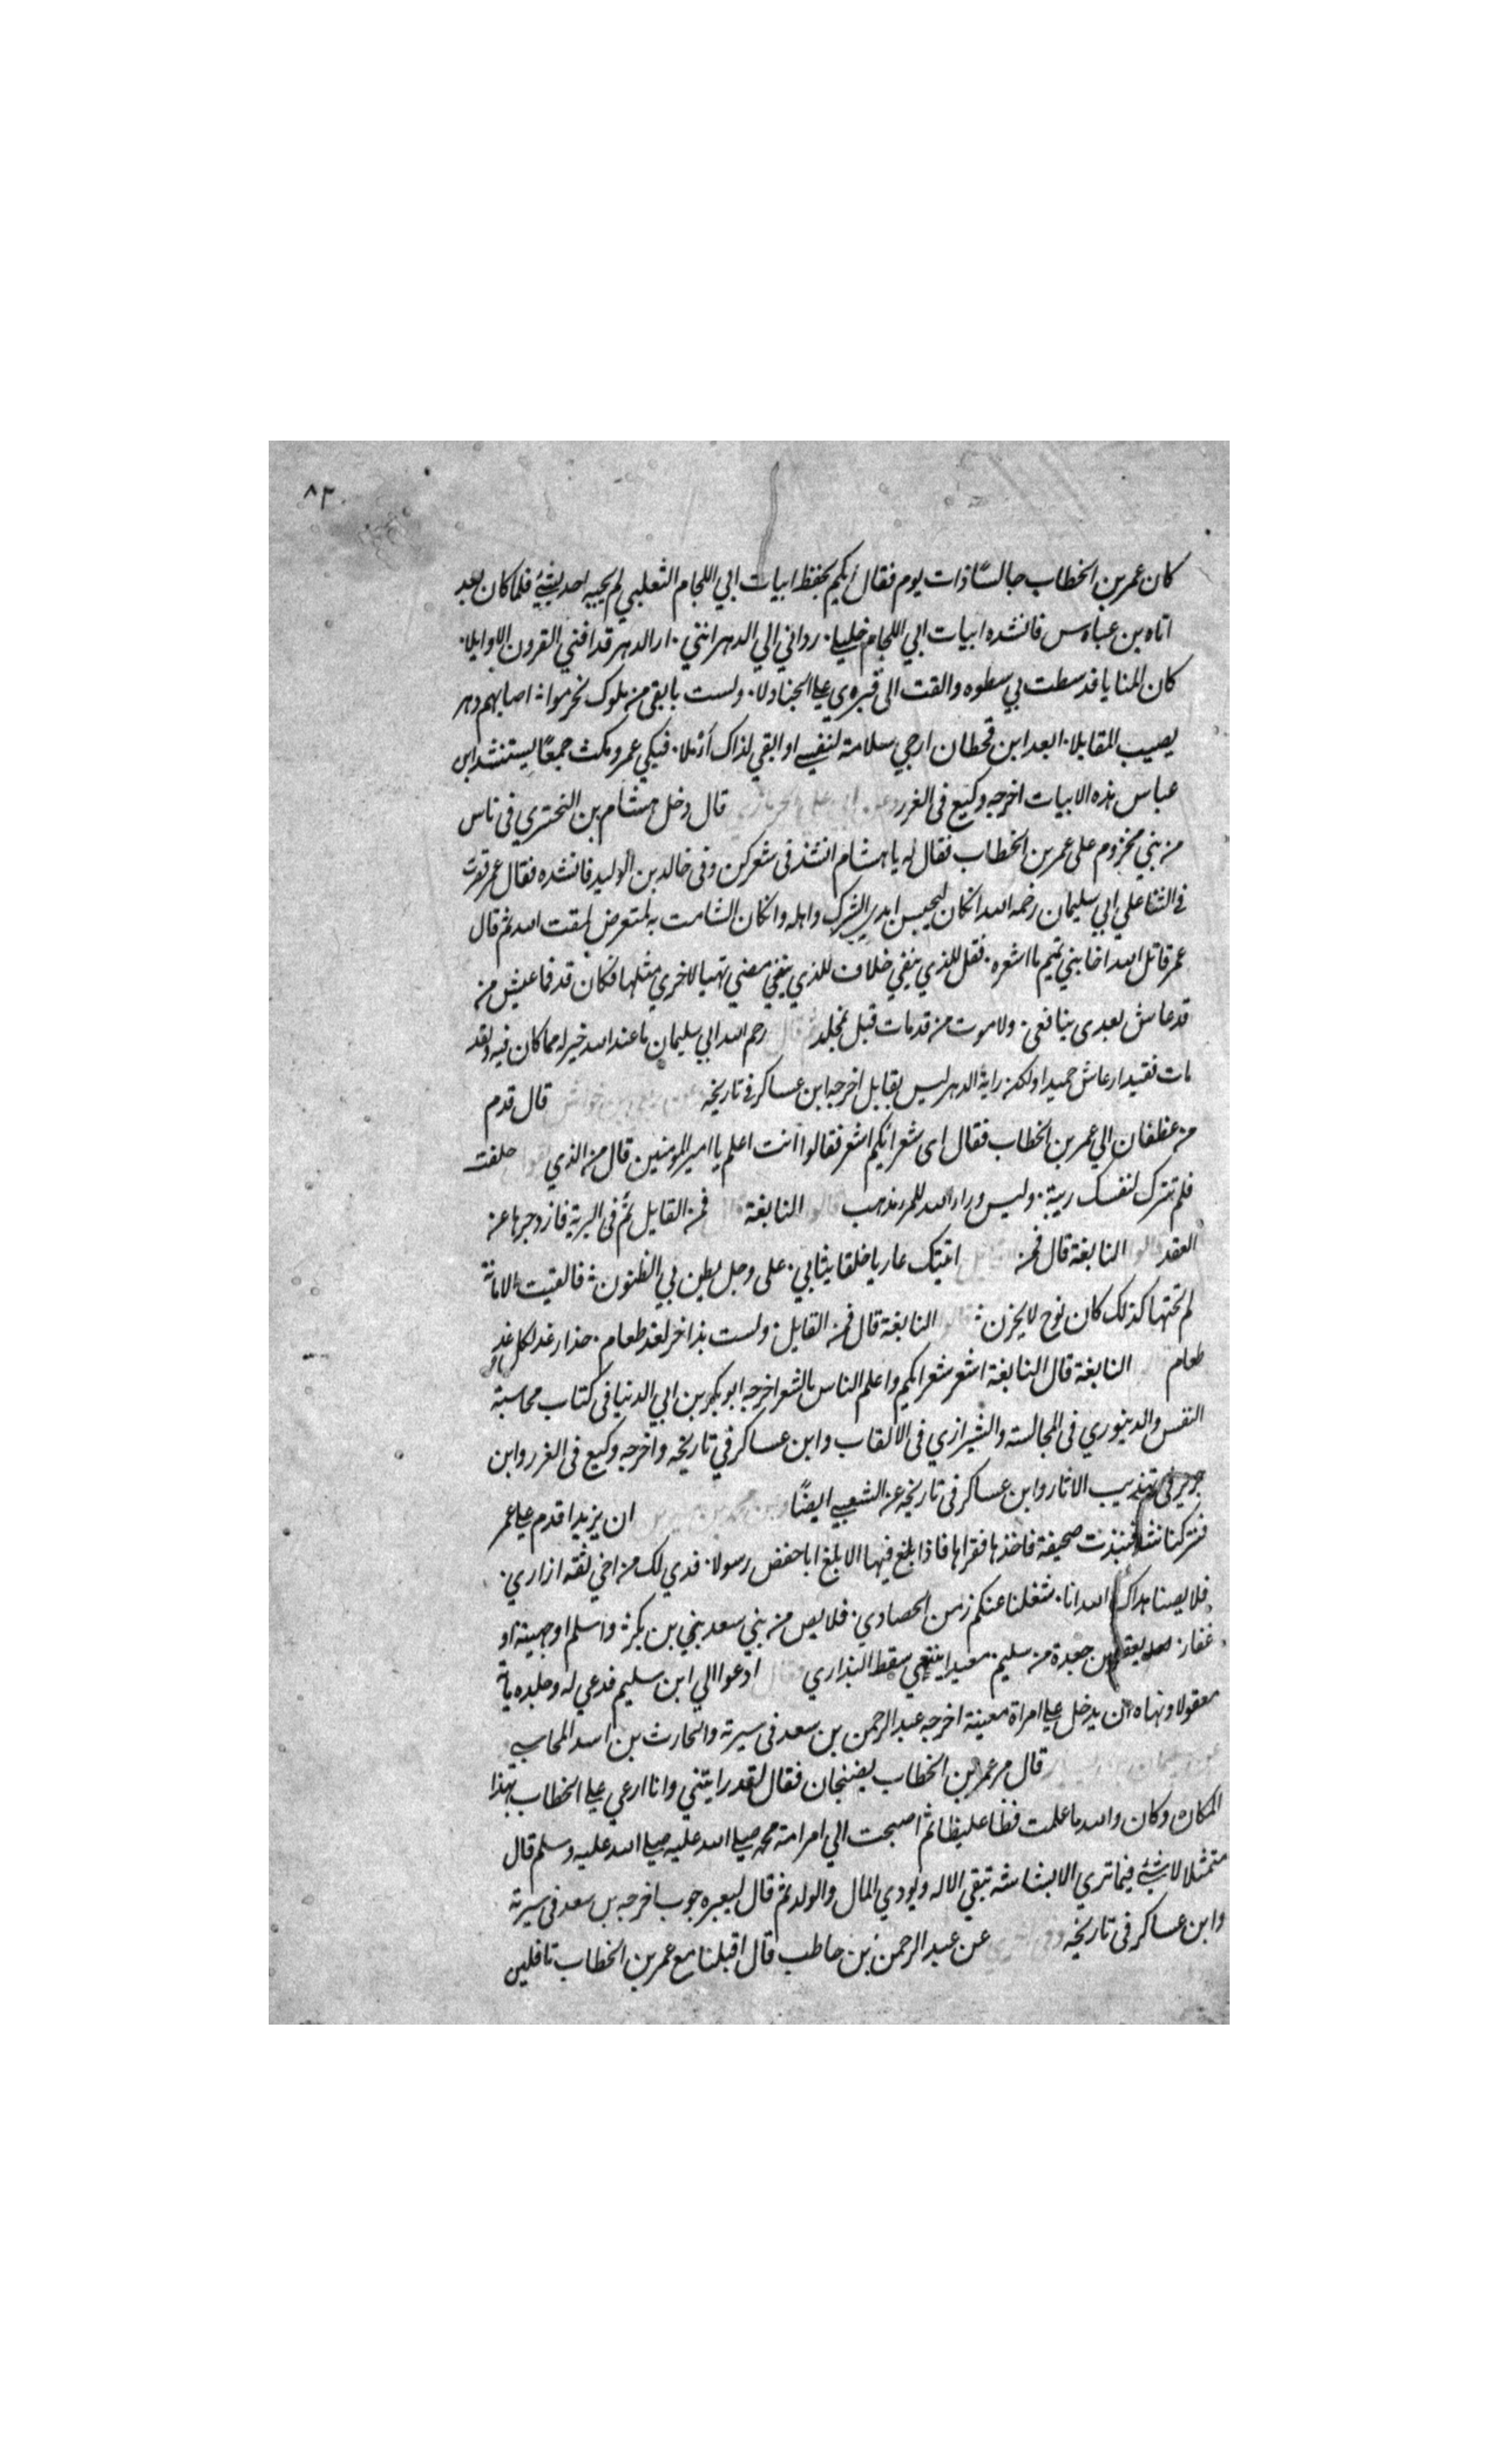 ٨٣
كان عمر بن الخطاب جالسًا ذات يوم فقال أيكم يحفظ ابيات ابي اللجام الثعلبي لم يجبه احد بشيئ فلما كان بعد
اتاه بن عباس فانشده ابيات ابي اللجام خليلي رداني الي الدهر انني ٠ ار الدهر قد افني القرون الاوايلا٠
كان المنايا قد سطت بي سطوه والقت الى قبره ي علي الجنادلا٠ ولست بابقى من ملوك تخرموا٠ اصابهم دهر
يصيب المقابلا٠ ابعد ابن قحطان ارجي سلامة لنفسي او القي لذاك أزملا٠ فبكي عمر ومكث جمعًا يستنشد ابن
عباس هذه الابيات اخرجه وكيع فى الغرر وعن ابي علي الحرمازي قال دخل هشام بن البختري فى ناس
من بني مخزوم على عمر بن الخطاب فقال له يا هشام انشذنى شعرك فى خالد بن الوليد فانشده فقال عمر قصرت
في الثنا علي ابي سليمان رحمه الله انكان ليحبس ابدي الشرك واهله وانكان الشامت به لمتعرض لمقت الله ثم قال
عمر قاتل الله اخا بني تميم ما اشعره ٠ فقل للذي ينقي خلاف للذي ينقي مضي تهيا لاخري مثلها فكان قد فما عيش من
قد عاش بعدى ينافعى٠ ولا موت من قد مات قبل بمخلد ثم قال رحم الله ابي سليمان ما عند الله خير له مما كان فيه ولقد
مات فقيدا وعاش حميدا ولكن راية الدهر ليس بقابل اخرجه ابن عساكر في تاريخه عن ربعي بن خراش قال قدم
من غطفان الي عمر بن الخطاب فقال اى شعرائكم اشعر فقالوا أنت اعلم يا امير المومنين قال من الذي يقول حلفت
فلم تترك لنفسك ريبة ٠ وليس وراء الله للمرء مذهب قالوا النابغة قال فمن القايل ثم فى البرية فازدجرها عن
العقد قالوا النابغة قال فمن القايل اتيتك عاريا خلقا يثابي ٠ على وجل يطين بي الظنون ٠ فالفيت الامانة
لم تختنها كذلك كان نوح لا يخزن ٠ قالوا النابغة قال فمن القايل٠ ولست بذاخر لغد طعام ٠ حذار غد لكل غد
طعام النابغة قال النابغة اشعر شعرائكم واعلم الناس بالشعر اخرجه ابو بكر بن ابي الدنيا فى كتاب محاسبة
النفس والدينوري فى المجالسة والشيرازي فى الالقاب وابن عساكر في تاريخه واخرجه وكيع فى الغرر وابن
جرير فى تهذيب الاثار وابن عساكر فى تاريخه عن الشعبي ايضًا وعن محمد بن سيرين ان يزيدا قدم علي عمر
فنثر كنانته فنبذت صحيفة فاخذها فقراها فاذا بلغ فيها الا بلغ ابا حفض رسولا٠ فدي لك من اخي ثقه ازاري٠
فلا يصنا هداك الله انا٠ شغلنا عنكم زمن الحصادي ٠ فلا يص من بني سعد بني بن بكر٠ واسلم او جهينة او
غفار٠ يعقلهن جعدة من سليم ٠ معيدا ينتغي سقط البذاري فقال ادعوا الي ابن سليم فدعي له وجلده ماة
معقولا ونهاه ان يدخل علي امراة معينة اخرجه عبد الرحمن بن سعد فى سيرته والحارث بن اسد المحاسبي
عن سليمان بن يسار قال مر عمر بن الخطاب بضنجان فقال لقد رايتني وانا ارعي علي الخطاب بهذا
المكان وكان والله ما علمت فظا غليظا ثم اصبحت الي امر امة محمد صلي الله عليه صلي الله عليه وسلم قال
متمثلا لا شيئ فيما تري الا بشاشته تبقي الاله ويودي المال والولد ثم قال لبعيره حوب اخرجه بن سعد فى سيرته
وابن عساكر فى تاريخه عن عبد الرحمن بن حاطب قال اقبلنا مع عمر بن الخطاب قافلين